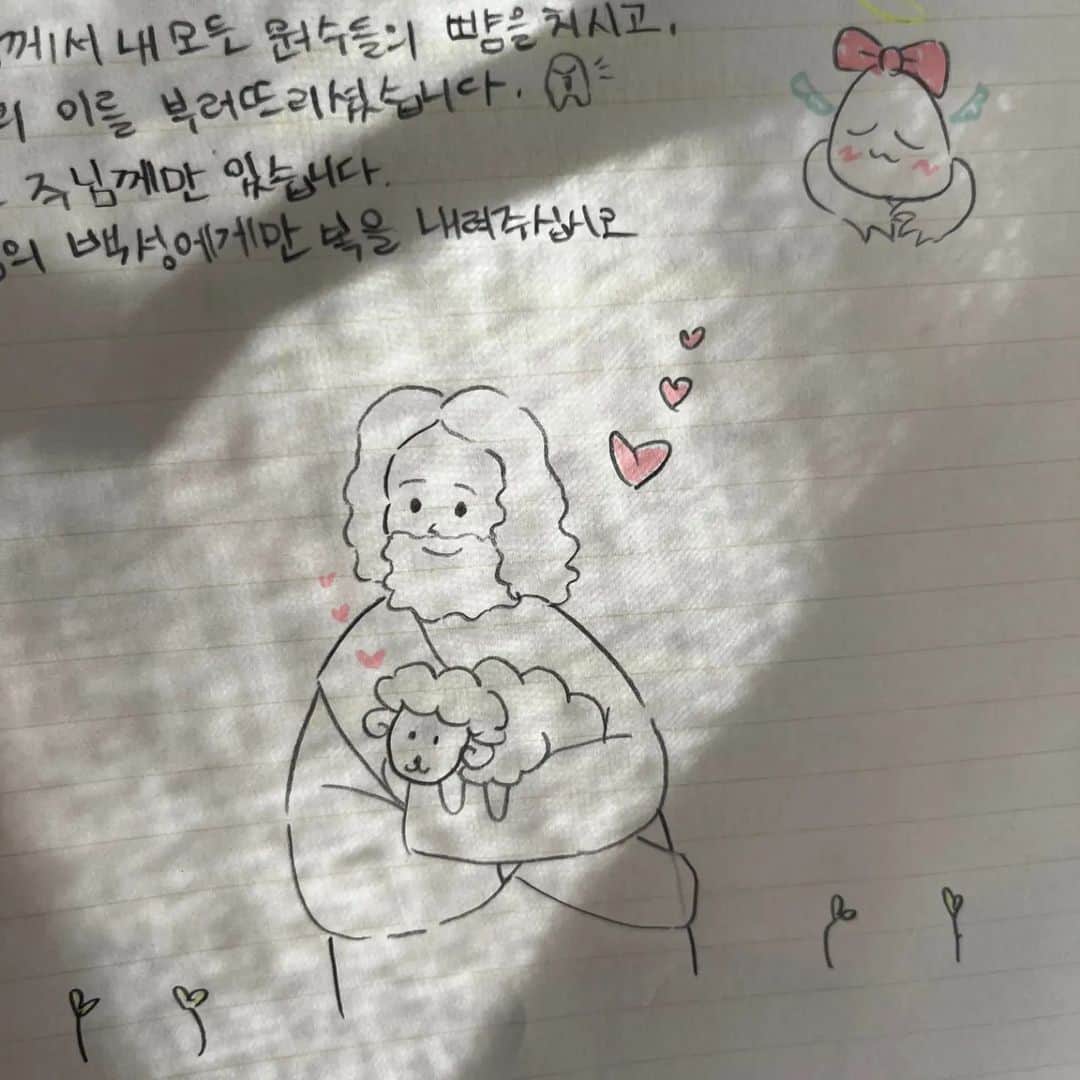 께서 내 모든 원수들의 뺨을 치시고,
의 이를 부러뜨리셨습니다.
주님께만 있습니다.
의 백성에게만 복을 내려주십시오